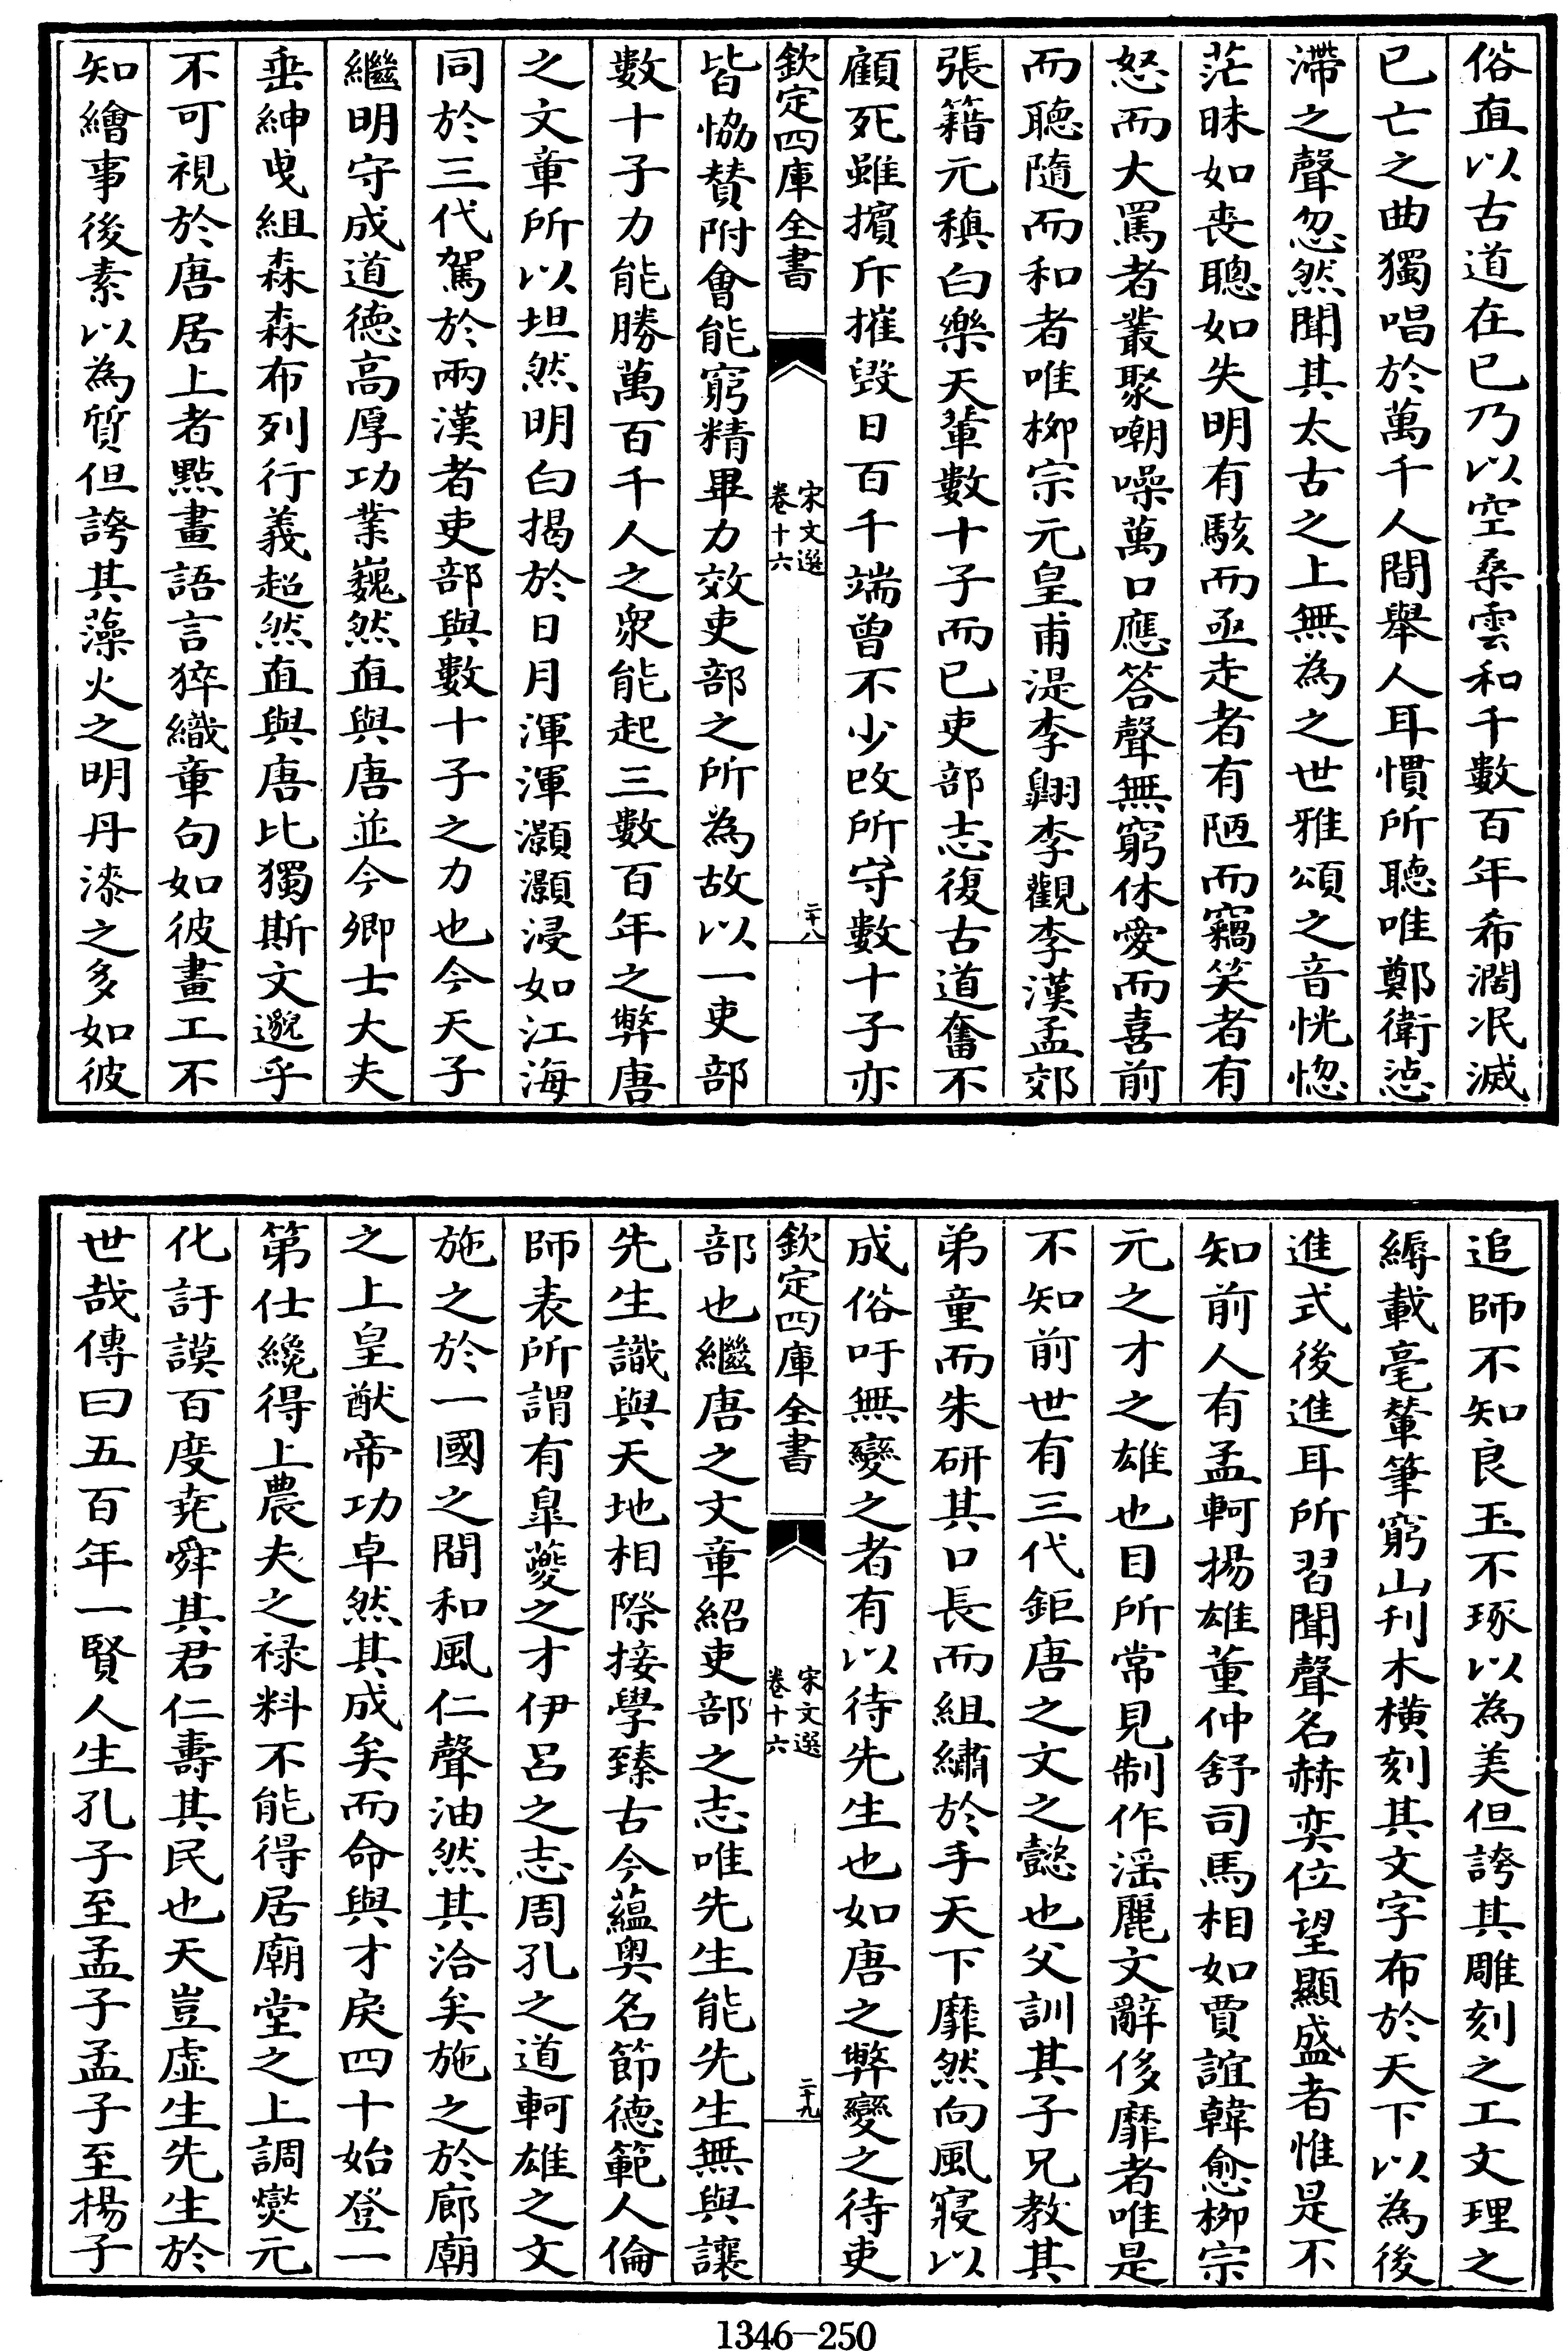 俗直以古道在已乃以空桑雲和千數百年希濶泯滅
已亡之曲獨唱於萬千人間舉人耳慣所聽唯鄭衛惉
滯之聲忽然聞其太古之上無為之世雅頌之音恍惚
茫昧如喪聰如失明有駭而亟走者有陋而竊笑者有
怒而大罵者叢聚嘲噪萬口應答聲無窮休愛而喜前
而聽隨而和者唯栁宗元皇甫湜李翺李觀李漢孟郊
張籍元稹白樂天輩數十子而已吏部志復古道奮不
顧死雖擯斥摧毀日百千端曾不少改所守數十子亦
欽定四庫全書
宋文選
卷十六
二十八
皆恊賛附會能窮精畢力效吏部之所為故以一吏部
數十子力能勝萬百千人之衆能起三數百年之弊唐
之文章所以坦然明白揭於日月渾渾灝灝浸如江海
同於三代駕於兩漢者吏部與數十子之力也今天子
繼明守成道德高厚功業巍然直與唐並今卿士大夫
垂紳曵組森森布列行義超然直與唐比獨斯文邈乎
不可視於唐居上者點畫語言猝織章句如彼畫工不
知繪事後素以為質但誇其藻火之明丹漆之多如彼
追師不知良玉不琢以為美但誇其雕刻之工文理之
縟載毫輦筆窮山刋木横刻其文字布於天下以為後
進式後進耳所習聞聲名赫奕位望顯盛者惟是不
知前人有孟軻揚雄董仲舒司馬相如賈誼韓愈栁宗
元之才之雄也目所常見制作淫麗文辭侈靡者唯是
不知前世有三代鉅唐之文之懿也父訓其子兄教其
弟童而朱研其口長而組繡於手天下靡然向風寖以
成俗吁無變之者有以待先生也如唐之弊變之待吏
欽定四庫全書
宋文選
卷十六
二十九
部也繼唐之文章紹吏部之志唯先生能先生無與讓
先生識與天地相際接學臻古今藴奥名節德範人倫
師表所謂有臯䕫之才伊吕之志周孔之道軻雄之文
施之於一國之間和風仁聲油然其洽矣施之於廊廟
之上皇猷帝功卓然其成矣而命與才戾四十始登一
第仕纔得上農夫之禄料不能得居廟堂之上調爕元
化訏謨百度堯舜其君仁壽其民也天豈虚生先生於
世哉傳曰五百年一賢人生孔子至孟子孟子至揚子
1346-250